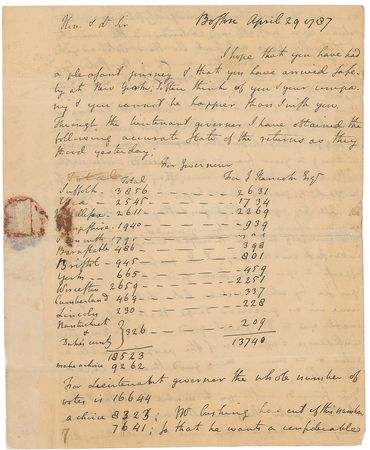 Boston April 29 1787
Hon. & d Sir
I hope that you have had
a pleasant journey & that you have arrived safe-
ly at New York. I often think of you & your compa-
ny & you cannot be happier than I wish you.
Through the lieutenant governer I have obtained the
following accurate State of the returns as they
stood yesterday.
For Governeur
Total Total For J Hancock Esqr
Suffolk - 3856 - 2631
Essex - 2545 - 1734
Middlesex - 2611 - 2269
Hampshire - 1940 - 939
Plymouth
Barnstable 486 - 398
Bristol - 945 - 801
York - 665 - 459
Worcester 2659 - 2251
Cumberland 469 - 337
Lincoln 230 - 228
Nantucket
& } 326 - 209
Dukes county
18523 13740
make a choice 9262
For Lieutenant governer the whole number of
votes is 16644
a choice 8323; Mr Cushing has out of this number
7641; so that he wants a considerable